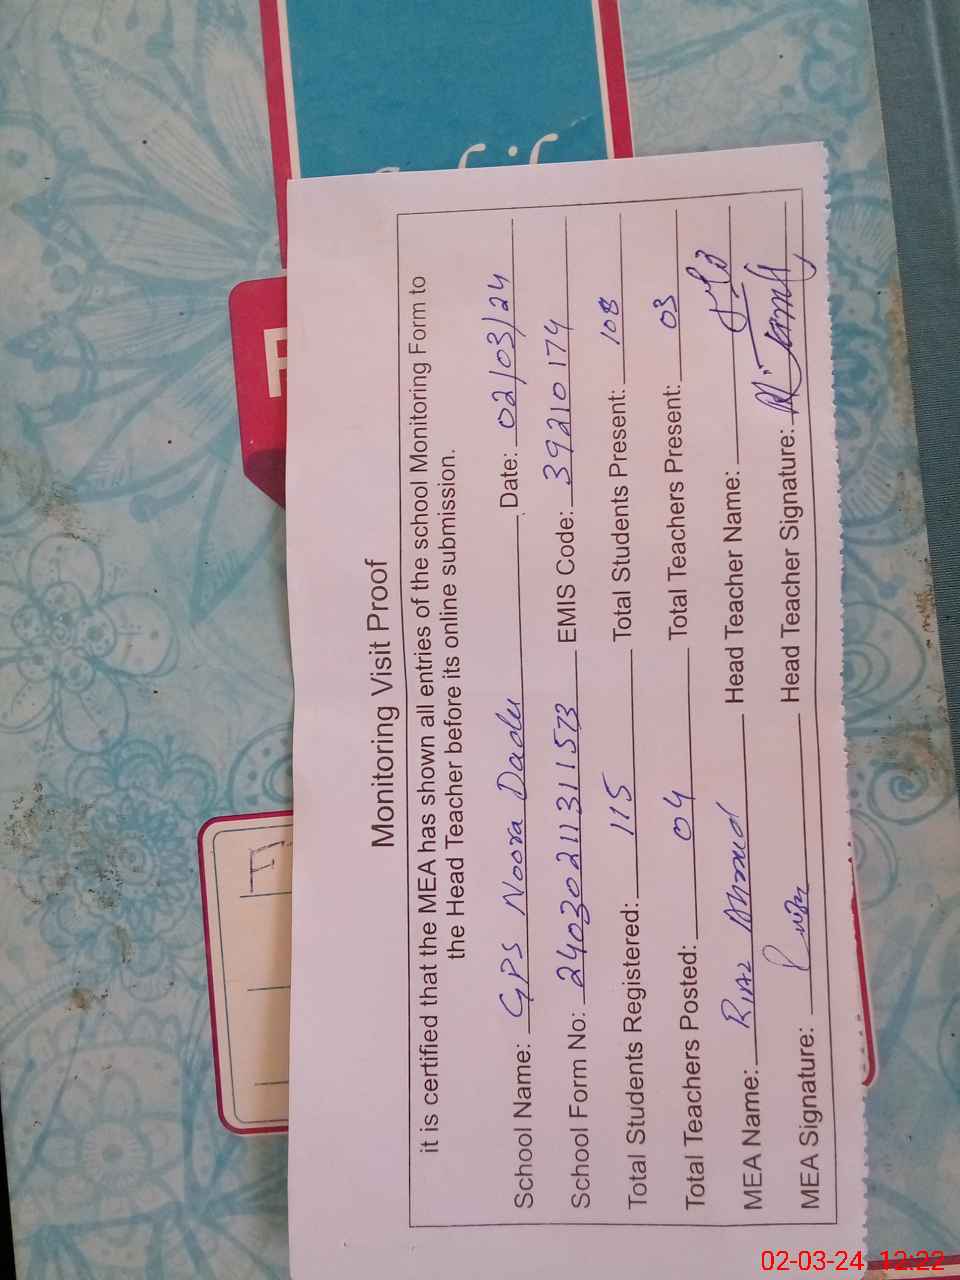 Monitoring Visit Proof
it is certified that the MEA has shown all entries of the school Monitoring Form to
the Head Teacher before its online submission.
School Name: GPS Noora Dadu Date: 02/03/24
School Form No: 2403021131 1573 EMIS Code: 39210174
Total Students Registered: 115 Total Students Present: 108
Total Teachers Posted: 04 Total Teachers Present: 03
MEA Name: Riaz Ahmad Head Teacher Name:
MEA Signature: Head Teacher Signature:
02-03-24 12:22